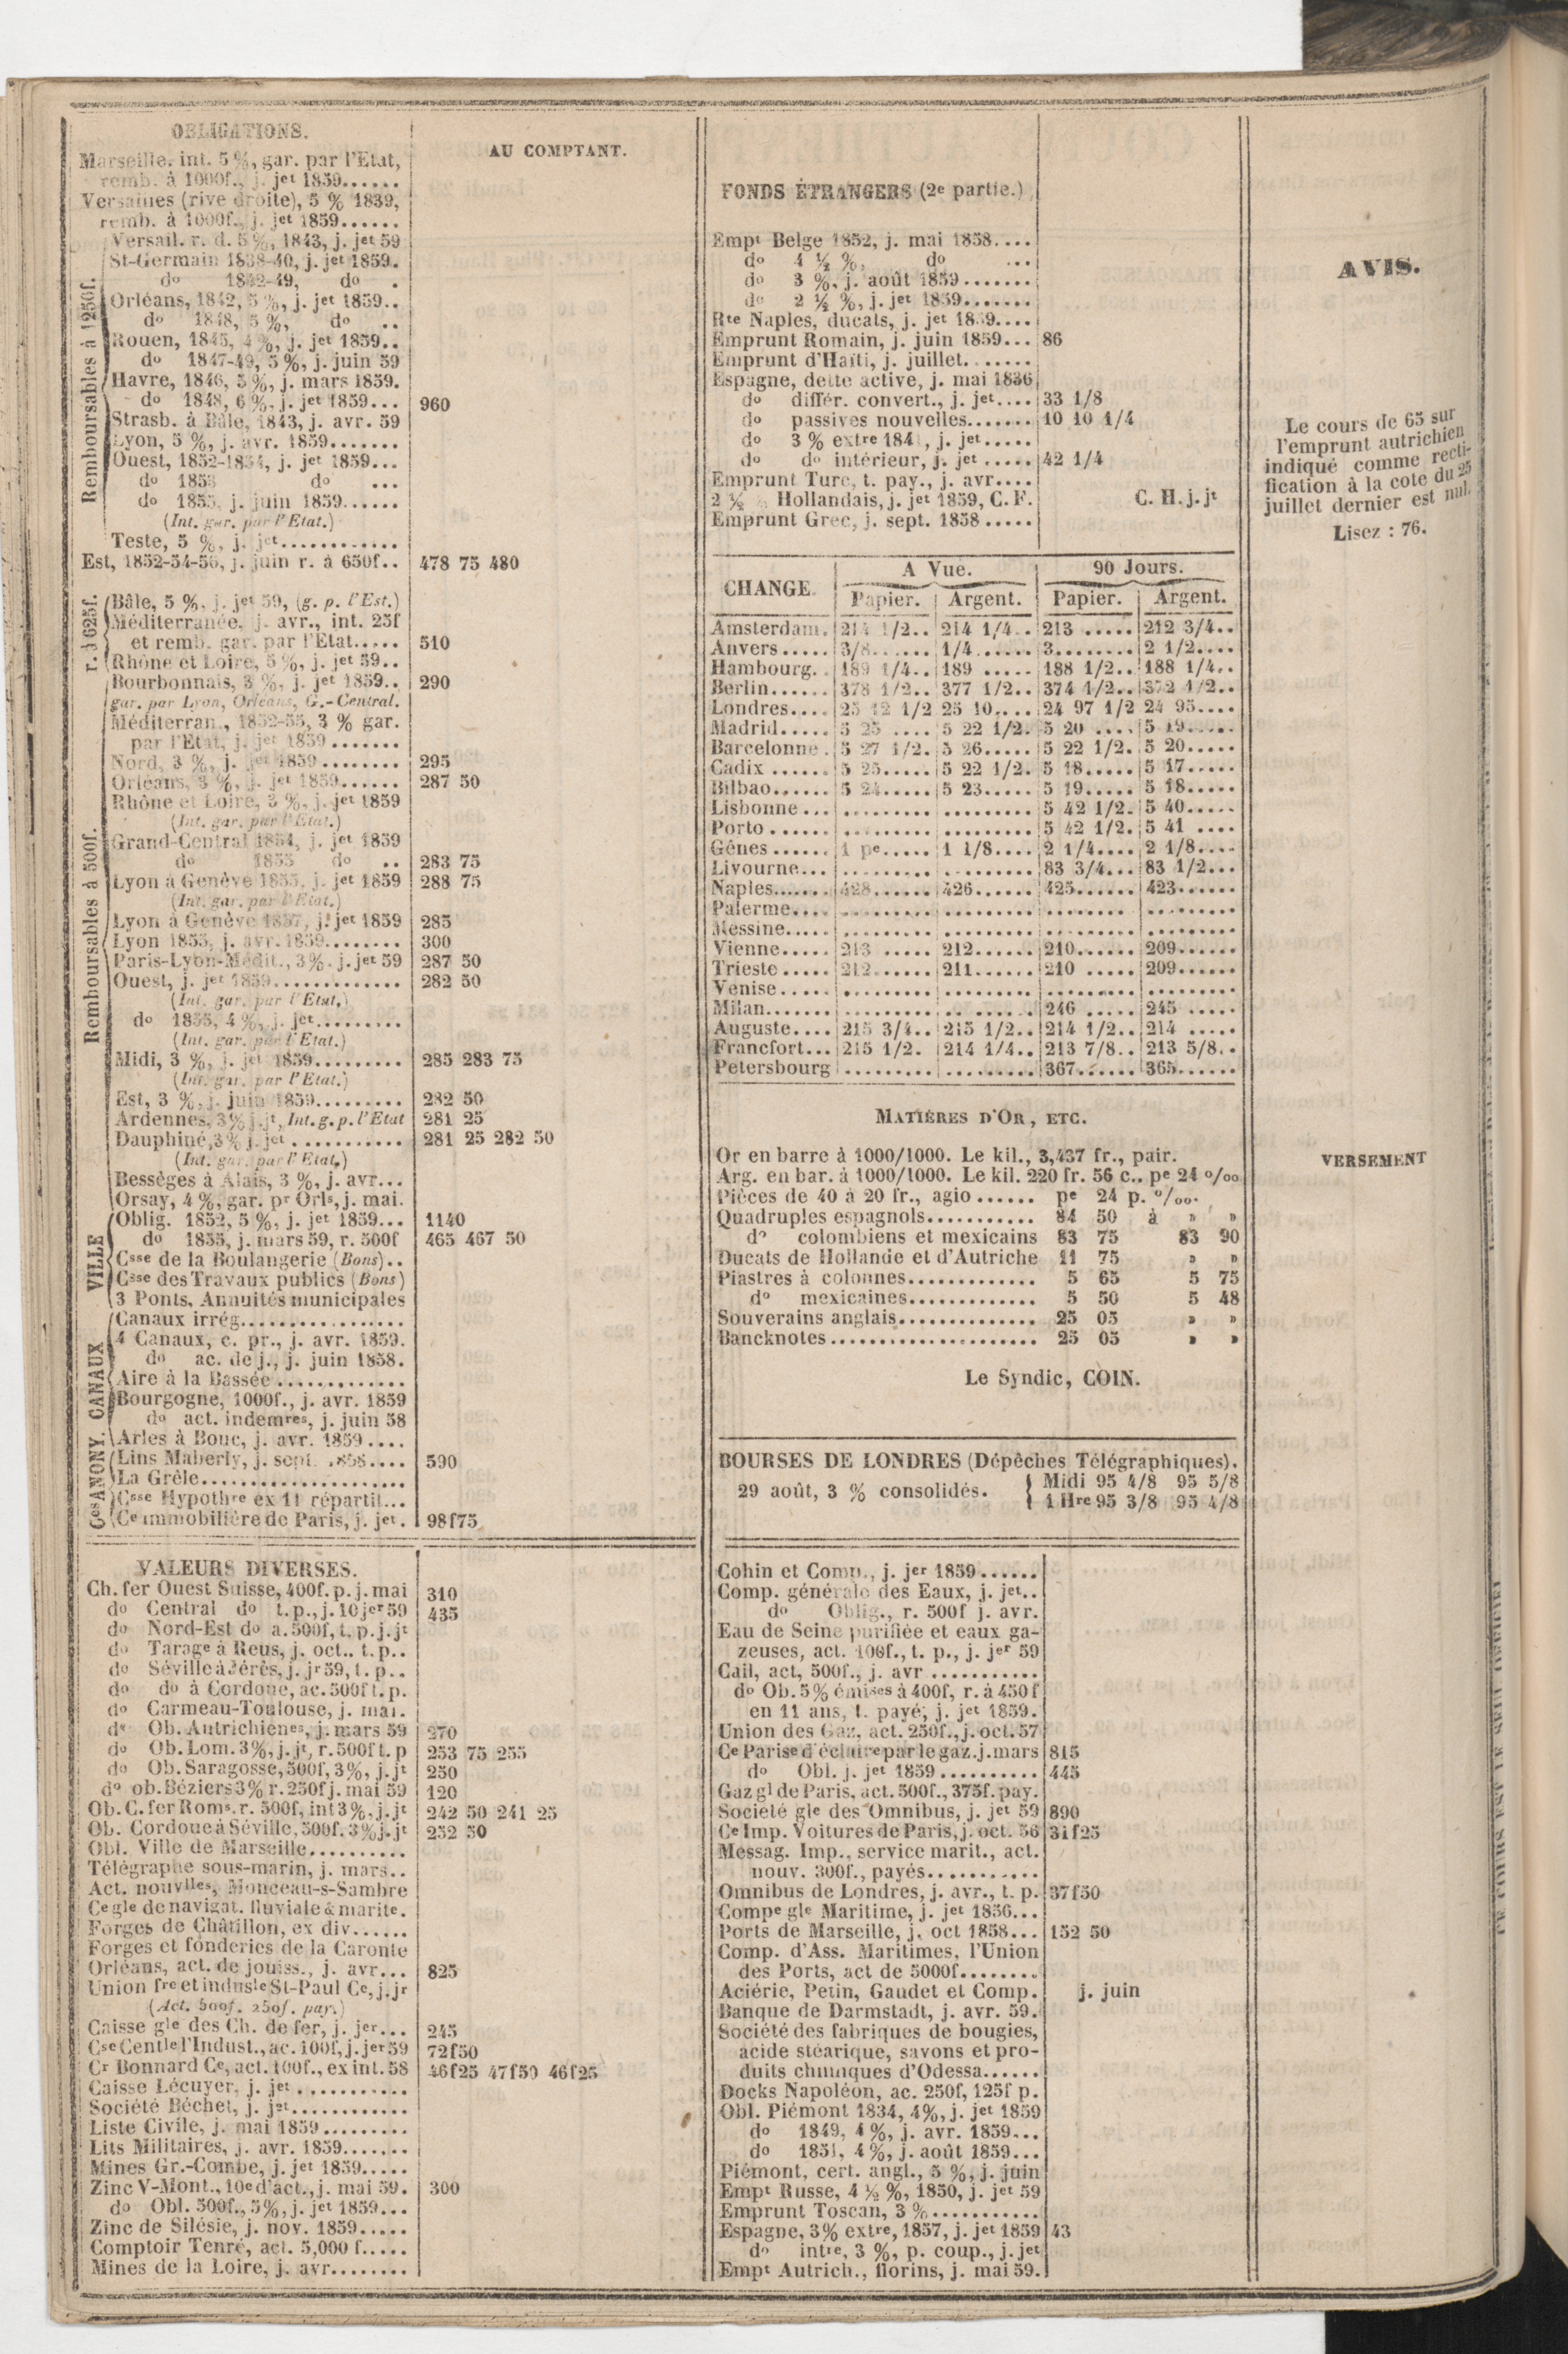 OBLIGATIONS.
AU COMPTANT.
Marseille, int. 5 %, gar. par l'Etat,
remb. à 1000f., j. jet 1859......
Versailles (rive droite), 5 % 1839,
remb. à 1000f., j. jet 1859......
Remboursables à 1250f.
Versail. r. d. 5 %, 1843, j. jet 59
St-Germain 1838-40, j. jet 1859.
do 1842-49, do .
Orléans, 1842, 5 %, j. jet 1859..
do 1848, 5 %, do ..
Rouen, 1845, 4 %, j. jet 1859..
do 1847-49, 5 %, j. juin 59
Havre, 1846, 5 %, j. mars 1859.
do 1848, 6 %, j. jet 1859... 960
Strasb. à Bâle, 1843, j. avr. 59
Lyon, 5 %, j. avr. 1859.......
Ouest, 1852-1854, j. jet 1859...
do 1853 do ...
do 1855, j. juin 1859......
(Int. gar. par l'Etat.)
Teste, 5 %, j. jet............
Est, 1852-54-56, j. juin r. à 650f.. 478 75 480
r. à 625f.
Bâle, 5 %, j. jet 59, (g. p. l'Est.)
Méditerranée, j. avr., int. 25f
et remb. gar. par l'Etat..... 510
Rhône et Loire, 5 %, j. jet 59..
Remboursables à 500f.
Bourbonnais, 3 %, j. jet 1859.. 290
gar. par Lyon, Orléans, G.-Central.
Méditerran., 1852-55, 3 % gar.
par l'Etat, j. jet 1859.......
Nord, 3 %, j. jet 1859........ 295
Orléans, 3 %, j. jet 1859...... 287 50
Rhône et Loire, 3 %, j. jet 1859
(Int. gar. par l'Etat.)
Grand-Central 1854, j. jet 1859
do 1855 do .. 283 75
Lyon à Genève 1855, j. jet 1859 288 75
(Int. gar. par l'Etat.)
Lyon à Genève 1857, j. jet 1859 285
Lyon 1855, j. avr. 1859........ 300
Paris-Lyon-Médit., 3%. j. jet 59 287 50
Ouest, j. jet 1859............. 282 50
(Int. gar. par l'Etat,)
do 1855, 4 %, j. jet.........
(Int. gar. par l'Etat.)
Midi, 3 %, j. jet 1859......... 285 283 75
(Int. gar. par l'Etat.)
Est, 3 %, j. juin 1859......... 282 50
Ardennes, 3% j.jt, Int. g. p. l'Etat 281 25
Dauphiné, 3% j. jet........... 281 25 282 50
(Int. gar. par l'Etat,)
Bessèges à Alais, 3 %, j. avr...
Orsay, 4 %, gar. pr Orls, j. mai.
VILLE
Oblig. 1852, 5 %, j. jet 1859... 1140
do 1855, j. mars 59, r. 500f 465 467 50
Csse de la Boulangerie (Bons)..
Csse des Travaux publics (Bons)
3 Ponts, Annuités municipales
CANAUX
Canaux irrég................
4 Canaux, c. pr., j. avr. 1859.
do ac. de j., j. juin 1858.
Aire à la Bassée............
Bourgogne, 1000f., j. avr. 1859
do act. indemres, j. juin 58
Arles à Bouc, j. avr. 1859....
Ces ANONY.
Lins Maberly, j. sept. 1858.... 590
La Grêle....................
Csse Hypothre ex 11 répartit...
Ce immobilière de Paris, j. jet. 98f75
VALEURS DIVERSES.
Ch. fer Ouest Suisse, 400f. p. j. mai 310
do Central do t. p., j. 10 jer 59 435
do Nord-Est do a. 500f, t. p. j. jt
do Tarage à Reus, j. oct.. t. p..
do Séville à Jérès, j. jr 59, t. p..
do do à Cordoue, ac. 500f t. p.
do Carmeau-Toulouse, j. mai.
do Ob. Autrichienes, j. mars 59 270
do Ob. Lom. 3%, j. jt, r. 500f t. p 253 75 255
do Ob. Saragosse, 500f, 3%, j. jt 250
do ob. Béziers 3% r. 250f j. mai 59 120
Ob. C. fer Roms. r. 500f, int 3%, j. jt 242 50 241 25
Ob. Cordoue à Séville, 500f. 3% j. jt 252 50
Obl. Ville de Marseille..........
Télégraphe sous-marin, j. mars..
Act. nouvlles, Monceau-s-Sambre
Ce gle de navigat. fluviale & marite.
Forges de Châtillon, ex div......
Forges et fonderies de la Caronte
Orléans, act. de jouiss., j. avr... 825
Union fre et indusle St-Paul Ce, j. jr
(Act. 500f. 250f. pay.)
Caisse gle des Ch. de fer, j. jer... 245
Cse Centle l'Indust., ac. 100f, j. jer 59 72f50
Cr Bonnard Ce, act. 100f., ex int. 58 46f25 47f50 46f25
Caisse Lécuyer, j. jet...........
Société Béchet, j. jet............
Liste Civile, j. mai 1859.........
Lits Militaires, j. avr. 1859.......
Mines Gr.-Combe, j. jet 1859.....
Zinc V-Mont., 10e d'act., j. mai 59. 300
do Obl. 500f., 5%, j. jet 1859...
Zinc de Silésie, j. nov. 1859.....
Comptoir Tenré, act. 5,000 f.....
Mines de la Loire, j. avr........
FONDS ÉTRANGERS (2e partie.)
Empt Belge 1852, j. mai 1858....
do 4 ½ %, do ...
do 3 %, j. août 1859.......
do 2 ½ %, j. jet 1859.......
Rte Naples, ducats, j. jet 1859....
Emprunt Romain, j. juin 1859... 86
Emprunt d'Haïti, j. juillet.......
Espagne, dette active, j. mai 1836
do différ. convert., j. jet.... 33 1/8
do passives nouvelles....... 10 10 1/4
do 3 % extre 1841, j. jet.....
do do intérieur, j. jet..... 42 1/4
Emprunt Turc, t. pay., j. avr....
2 ½ % Hollandais, j. jet 1859, C. F. C. H. j. jt
Emprunt Grec, j. sept. 1858.....
CHANGE. A Vue. 90 Jours.
Papier. Argent. Papier. Argent.
Amsterdam. 214 1/2.. 214 1/4.. 213 ..... 212 3/4..
Anvers..... 3/8...... 1/4...... 3........ 2 1/2....
Hambourg.. 189 1/4.. 189 ..... 188 1/2.. 188 1/4..
Berlin...... 378 1/2.. 377 1/2.. 374 1/2.. 372 1/2..
Londres.... 25 12 1/2 25 10.... 24 97 1/2 24 95....
Madrid..... 5 25 .... 5 22 1/2. 5 20 .... 5 19.....
Barcelonne. 5 27 1/2. 5 26..... 5 22 1/2. 5 20.....
Cadix...... 5 25..... 5 22 1/2. 5 18..... 5 17.....
Bilbao...... 5 24..... 5 23..... 5 19..... 5 18.....
Lisbonne... ......... ......... 5 42 1/2. 5 40.....
Porto...... ......... ......... 5 42 1/2. 5 41 ....
Gênes...... 1 pe..... 1 1/8.... 2 1/4.... 2 1/8....
Livourne... ......... ......... 83 3/4... 83 1/2...
Naples....... 428...... 426...... 425...... 423......
Palerme.... ......... ......... ........ .........
Messine..... ......... ......... ......... .........
Vienne..... 213 ..... 212...... 210...... 209......
Trieste..... 212...... 211...... 210 ..... 209......
Venise..... ......... ......... ......... .........
Milan....... ......... ......... 246 ..... 245 .....
Auguste.... 215 3/4.. 215 1/2.. 214 1/2.. 214 .....
Francfort... 215 1/2. 214 1/4.. 213 7/8.. 213 5/8..
Petersbourg ......... ......... 367...... 365......
MATIÈRES D'OR, ETC.
Or en barre à 1000/1000. Le kil., 3,437 fr., pair.
Arg. en bar. à 1000/1000. Le kil. 220 fr. 56 c.. pe 24 o/oo
Pièces de 40 à 20 fr., agio...... pe 24 p. o/oo.
Quadruples espagnols........... 84 50 à » »
do colombiens et mexicains 83 75 83 90
Ducats de Hollande et d'Autriche 11 75 » »
Piastres à colonnes............. 5 65 5 75
do mexicaines............. 5 50 5 48
Souverains anglais.............. 25 05 » »
Bancknotes..................... 25 05 » »
Le Syndic, COIN.
BOURSES DE LONDRES (Dépêches Télégraphiques).
29 août, 3 % consolidés. Midi 95 4/8 95 5/8
1 Hre 95 3/8 95 4/8
Cohin et Comp., j. jer 1859......
Comp. générale des Eaux, j. jet..
do Oblig., r. 500f j. avr.
Eau de Seine purifiée et eaux ga-
zeuses, act. 100f., t. p., j. jer 59
Cail, act, 500f., j. avr...........
do Ob. 5% émises à 400f, r. à 450f
en 11 ans, t. payé, j. jet 1859.
Union des Gaz, act. 250f., j. oct. 57
Ce Parise d'éclaire par le gaz. j. mars 815
do Obl. j. jet 1859.......... 445
Gaz gl de Paris, act. 500f., 375f. pay.
Societé gle des Omnibus, j. jet 59 890
Ce Imp. Voitures de Paris, j. oct. 56 31f25
Messag. Imp., service marit., act.
nouv. 300f., payés...........
Omnibus de Londres, j. avr., t. p. 37f50
Compe gle Maritime, j. jet 1856...
Ports de Marseille, j. oct 1858... 152 50
Comp. d'Ass. Maritimes, l'Union
des Ports, act de 5000f........
Aciérie, Petin, Gaudet et Comp. j. juin
Banque de Darmstadt, j. avr. 59.
Société des fabriques de bougies,
acide stéarique, savons et pro-
duits chimiques d'Odessa......
Docks Napoléon, ac. 250f, 125f p.
Obl. Piémont 1834, 4%, j. jet 1859
do 1849, 4 %, j. avr. 1859...
do 1851, 4 %, j. août 1859...
Piémont, cert. angl., 5 %, j. juin
Empt Russe, 4 ½ %, 1850, j. jet 59
Emprunt Toscan, 3 %...........
Espagne, 3% extre, 1857, j. jet 1859 43
do intre, 3 %, p. coup., j. jet
Empt Autrich., florins, j. mai 59.
AVIS.
Le cours de 65 sur
l'emprunt autrichien
indiqué comme recti-
fication à la cote du 25
juillet dernier est nul.
Lisez : 76.
VERSEMENT